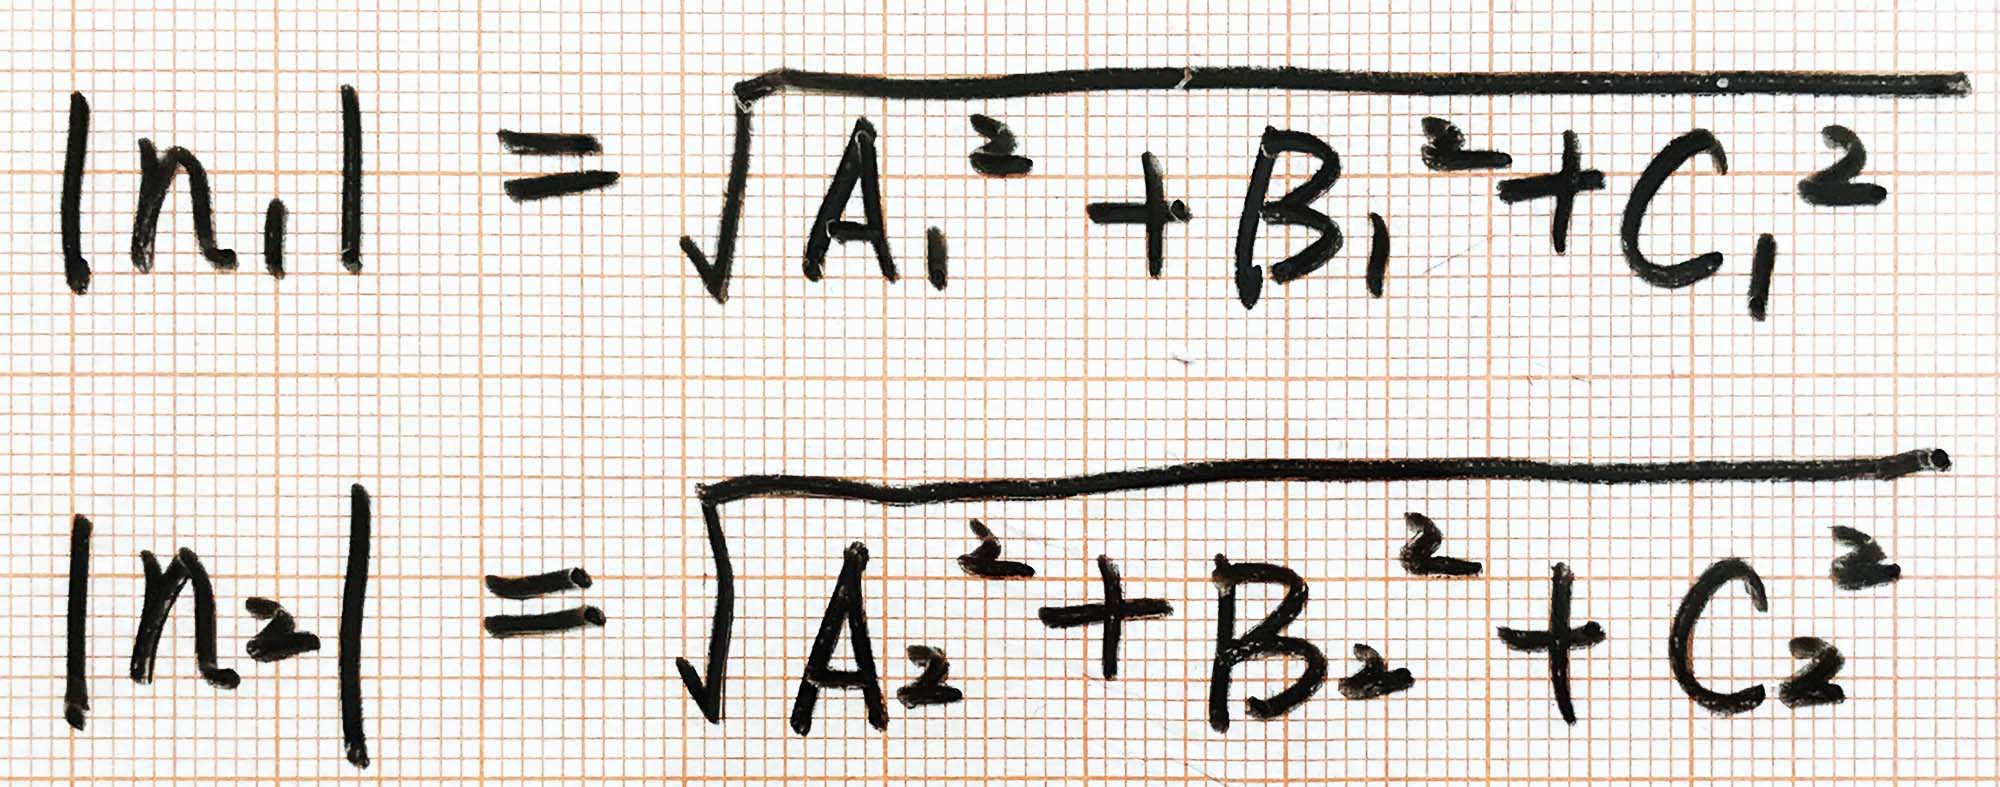 |n₁| = √(A₁² + B₁² + C₁²)
|n₂| = √(A₂² + B₂² + C₂²)